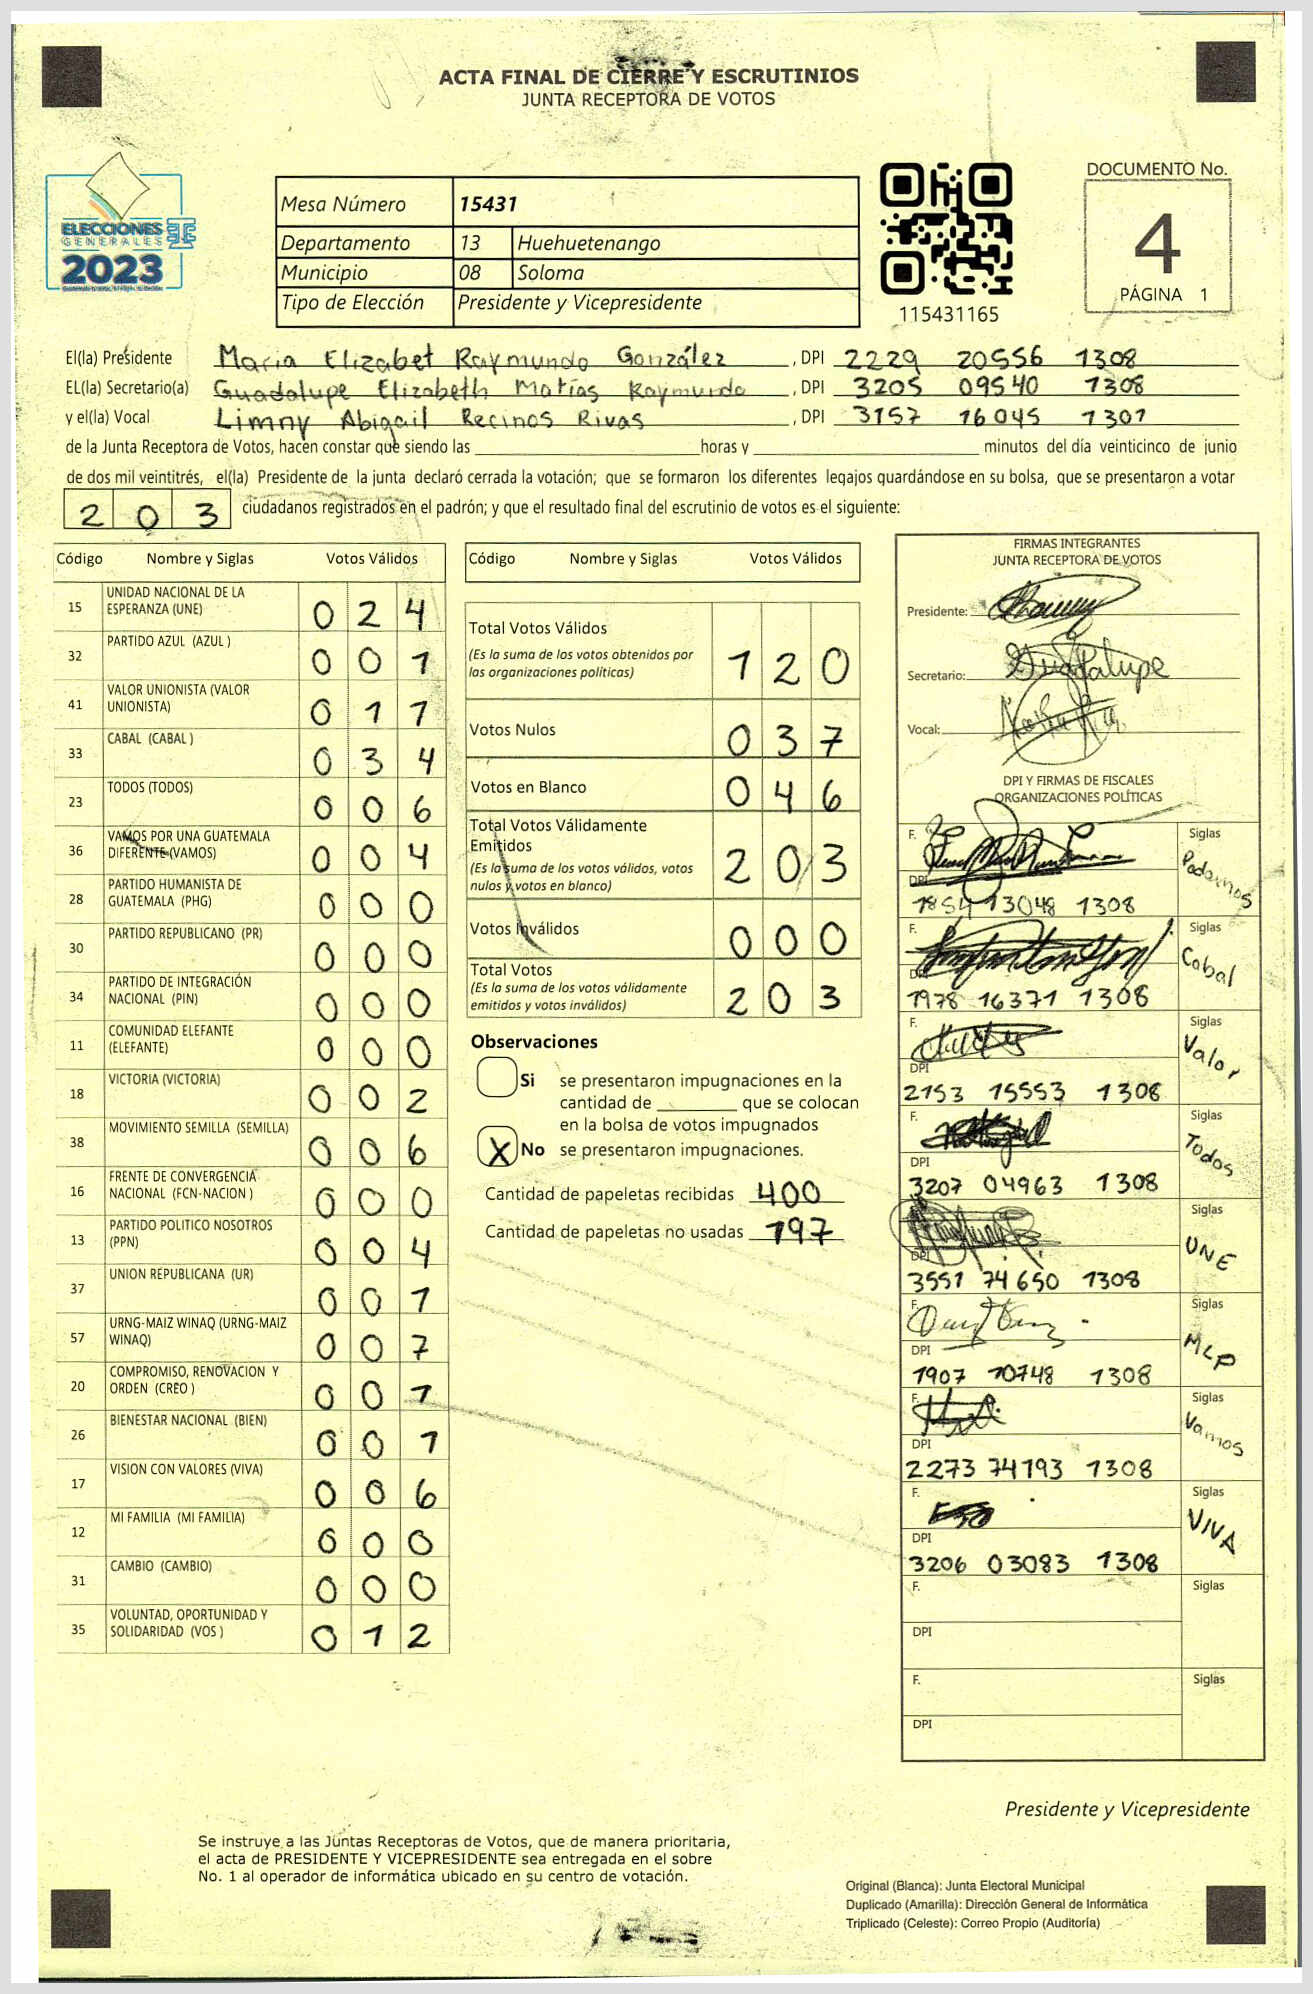 ACTA FINAL DE CIERRE Y ESCRUTINIOS
JUNTA RECEPTORA DE VOTOS
ELECCIONES
GENERALES
2023
Mesa Número 15431
Departamento 13 Huehuetenango
Municipio 08 Soloma
Tipo de Elección Presidente y Vicepresidente
115431165
DOCUMENTO No.
4
PÁGINA 1
El(la) Presidente Maria Elizabet Raymundo González, DPI 2229 20556 1308
EL(la) Secretario(a) Guadalupe Elizabeth Matías Raymundo, DPI 3205 09540 1308
y el(la) Vocal Limny Abigail Recinos Rivas, DPI 3157 16045 1301
de la Junta Receptora de Votos, hacen constar que siendo las ____ horas y ____ minutos del día veinticinco de junio
de dos mil veintitrés, el(la) Presidente de la junta declaró cerrada la votación; que se formaron los diferentes legajos guardándose en su bolsa, que se presentaron a votar
203 ciudadanos registrados en el padrón; y que el resultado final del escrutinio de votos es el siguiente:
Código Nombre y Siglas Votos Válidos
15 UNIDAD NACIONAL DE LA ESPERANZA (UNE) 024
32 PARTIDO AZUL (AZUL ) 001
41 VALOR UNIONISTA (VALOR UNIONISTA) 011
33 CABAL (CABAL ) 034
23 TODOS (TODOS) 006
36 VAMOS POR UNA GUATEMALA DIFERENTE (VAMOS) 004
28 PARTIDO HUMANISTA DE GUATEMALA (PHG) 000
30 PARTIDO REPUBLICANO (PR) 000
34 PARTIDO DE INTEGRACIÓN NACIONAL (PIN) 000
11 COMUNIDAD ELEFANTE (ELEFANTE) 000
18 VICTORIA (VICTORIA) 002
38 MOVIMIENTO SEMILLA (SEMILLA) 006
16 FRENTE DE CONVERGENCIA NACIONAL (FCN-NACION ) 000
13 PARTIDO POLITICO NOSOTROS (PPN) 004
37 UNION REPUBLICANA (UR) 001
57 URNG-MAIZ WINAQ (URNG-MAIZ WINAQ) 007
20 COMPROMISO, RENOVACION Y ORDEN (CREO ) 001
26 BIENESTAR NACIONAL (BIEN) 001
17 VISION CON VALORES (VIVA) 006
12 MI FAMILIA (MI FAMILIA) 000
31 CAMBIO (CAMBIO) 000
35 VOLUNTAD, OPORTUNIDAD Y SOLIDARIDAD (VOS ) 012
Código Nombre y Siglas Votos Válidos
Total Votos Válidos 120
(Es la suma de los votos obtenidos por
las organizaciones políticas)
Votos Nulos 037
Votos en Blanco 046
Total Votos Válidamente
Emitidos 203
(Es la suma de los votos válidos, votos
nulos y votos en blanco)
Votos Inválidos 000
Total Votos 203
(Es la suma de los votos válidamente
emitidos y votos inválidos)
Observaciones
Si se presentaron impugnaciones en la
cantidad de ____ que se colocan
en la bolsa de votos impugnados
X No se presentaron impugnaciones.
Cantidad de papeletas recibidas 400
Cantidad de papeletas no usadas 197
FIRMAS INTEGRANTES
JUNTA RECEPTORA DE VOTOS
Presidente:
Secretario: Guadalupe
Vocal:
DPI Y FIRMAS DE FISCALES
ORGANIZACIONES POLÍTICAS
F. Siglas Podemos
DPI 1854 13048 1308
F. Siglas Cabal
DPI 1978 16371 1308
F. Siglas Valor
DPI 2153 15553 1308
F. Siglas Todos
DPI 3207 04963 1308
F. Siglas UNE
DPI 3551 74650 1308
F. Siglas MLP
DPI 1907 10748 1308
F. Siglas Vamos
DPI 2273 74193 1308
F. Siglas VIVA
DPI 3206 03083 1308
F. Siglas
DPI
F. Siglas
DPI
Presidente y Vicepresidente
Se instruye a las Juntas Receptoras de Votos, que de manera prioritaria,
el acta de PRESIDENTE Y VICEPRESIDENTE sea entregada en el sobre
No. 1 al operador de informática ubicado en su centro de votación.
Original (Blanca): Junta Electoral Municipal
Duplicado (Amarilla): Dirección General de Informática
Triplicado (Celeste): Correo Propio (Auditoría)